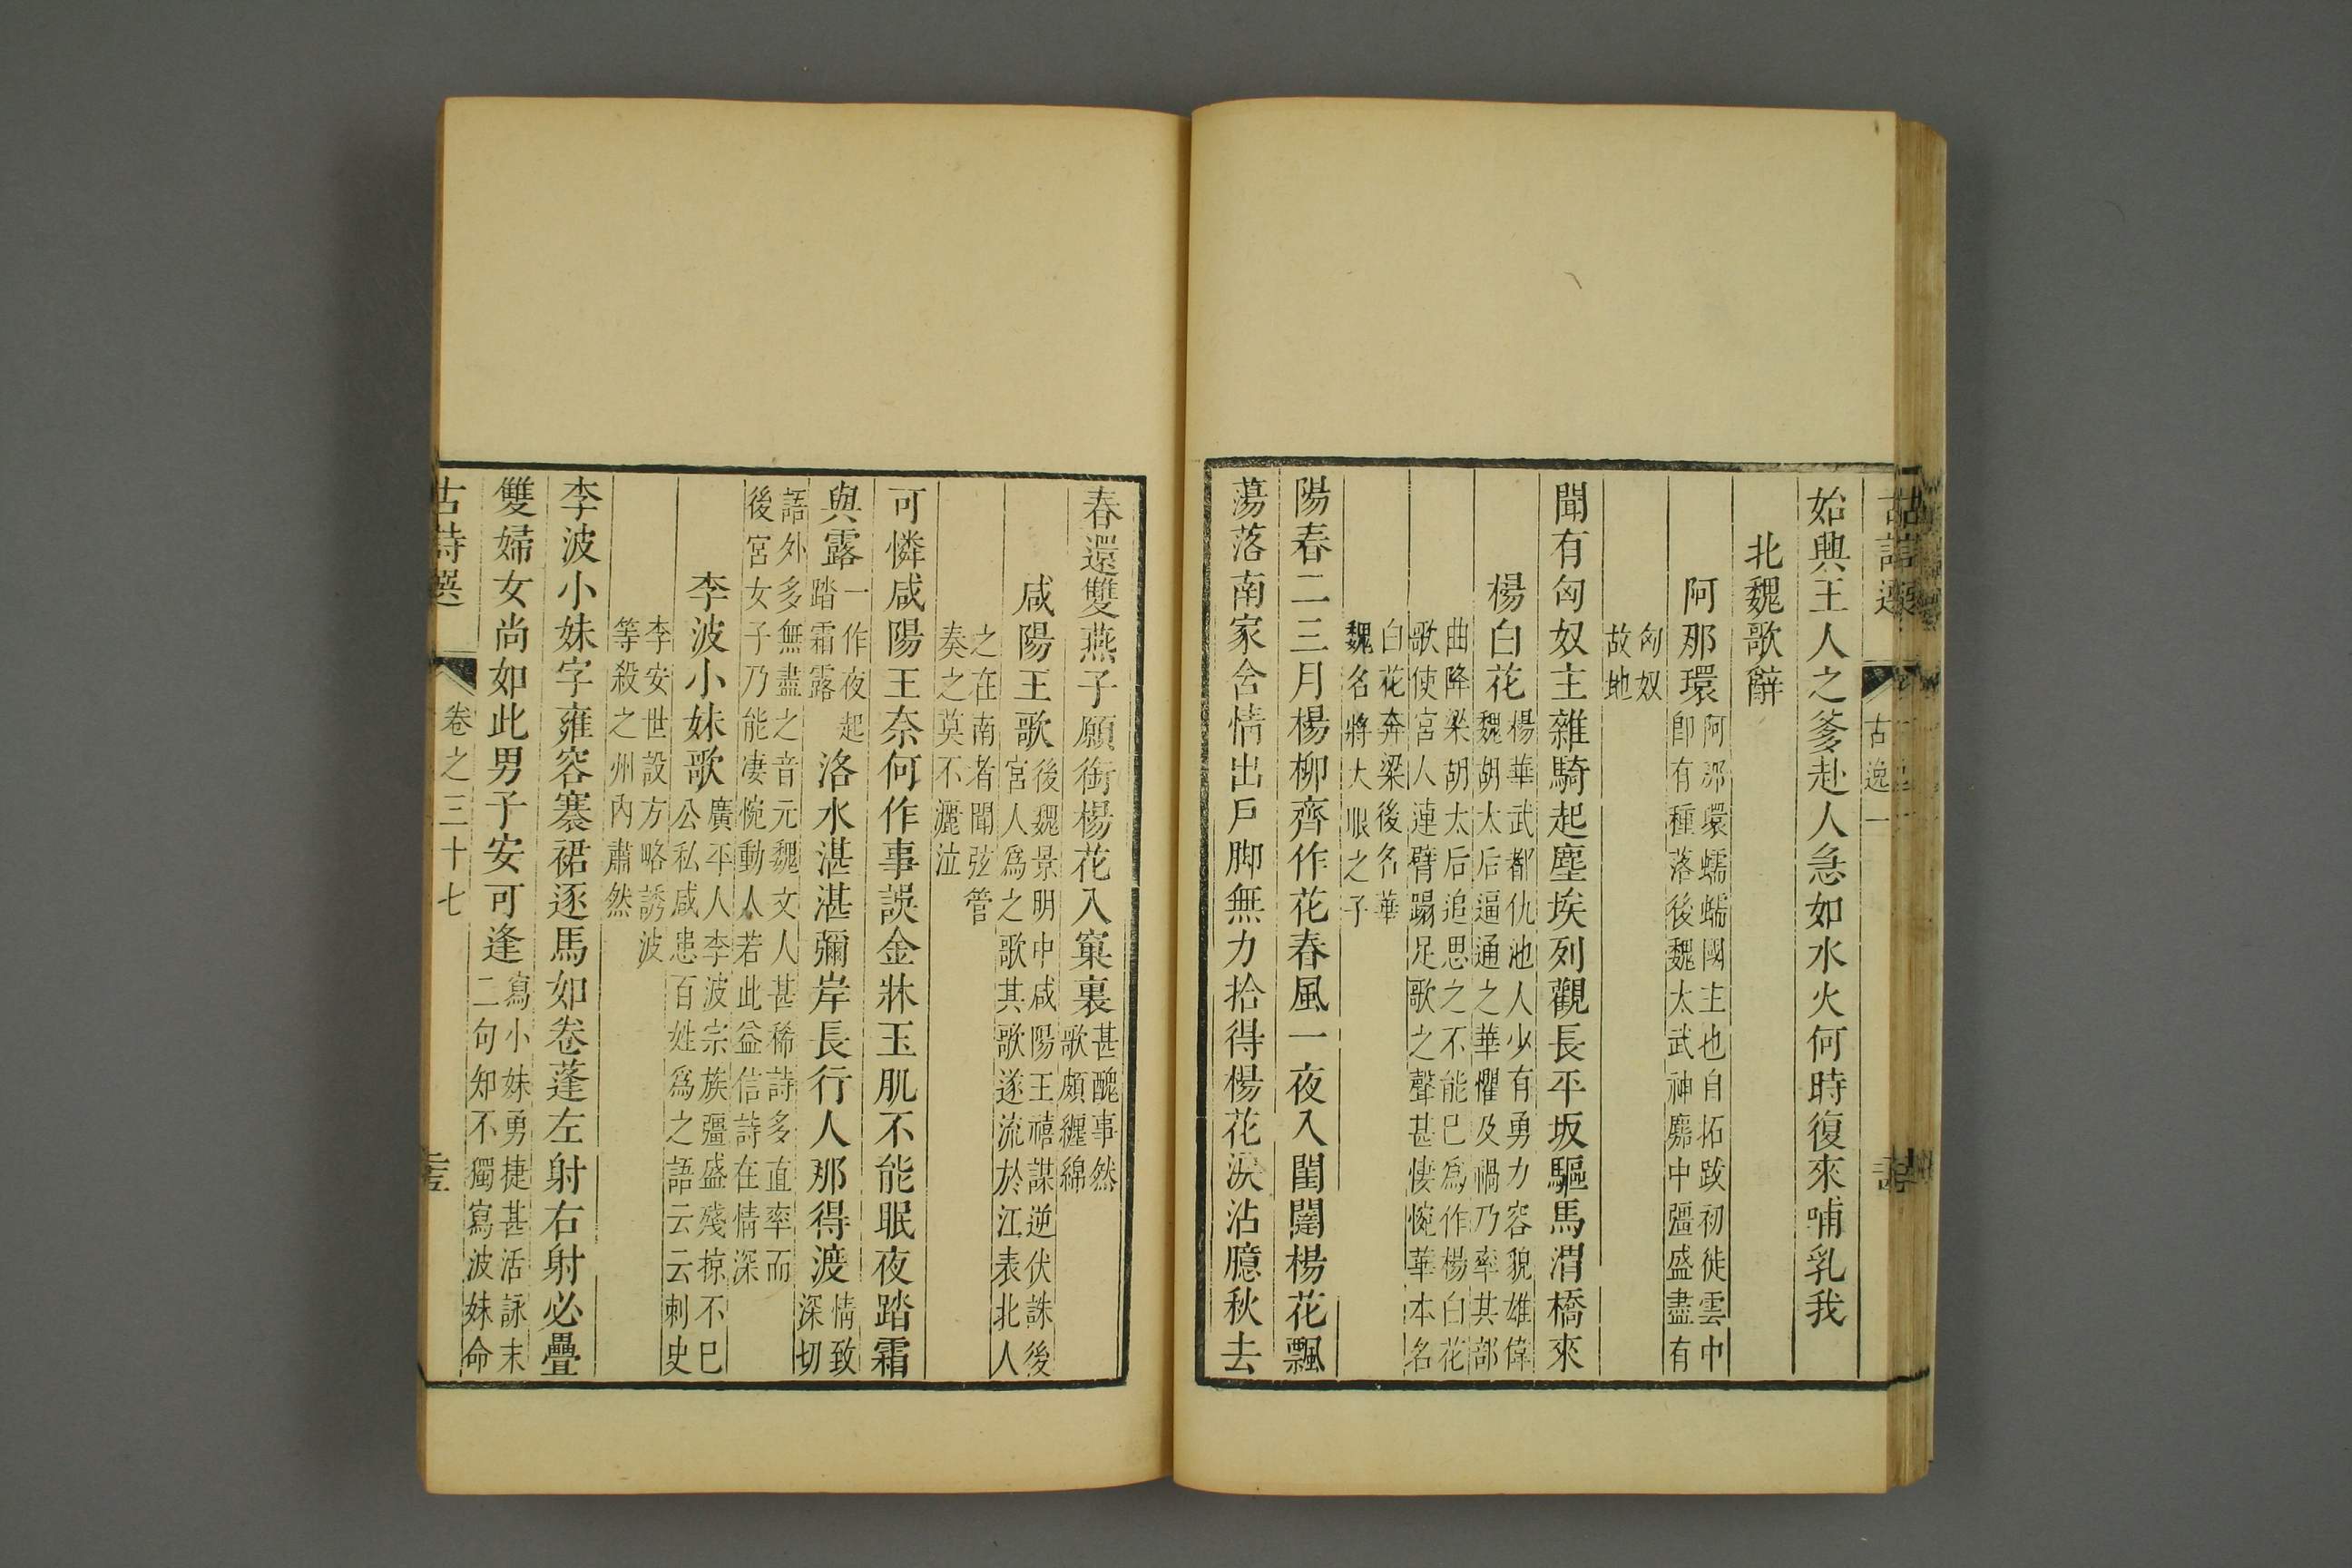 古逸一
始興王人之爹赴人急如水火何時復來哺乳我
北魏歌辭
阿那環
阿那環蠕蠕國主也自拓跋初徙雲中
即有種落後魏太武神䴥中彊盛盡有
匈奴
故地
聞有匈奴主雜騎起塵埃列觀長平坂驅馬渭橋來
楊白花
楊華武都仇池人少有勇力容貌雄偉
魏胡太后逼通之華懼及禍乃率其部
曲降梁胡太后追思之不能已爲作楊白花
歌使宮人連臂蹋足歌之聲甚悽惋華本名
白花奔梁後名華
魏名將大眼之子
陽春二三月楊柳齊作花春風一夜入閨闥楊花飄
蕩落南家含情出戶脚無力拾得楊花淚沾臆秋去
春還雙燕子願銜楊花入窠裏
甚醜事然
歌頗纒綿
咸陽王歌
後魏景明中咸陽王禧謀逆伏誅後
宮人爲之歌其歌遂流於江表北人
之在南者聞弦管
奏之莫不灑泣
可憐咸陽王奈何作事誤金牀玉肌不能眠夜踏霜
與露
一作夜起
踏霜露
洛水湛湛彌岸長行人那得渡
情致
深切
語外多無盡之音元魏文人甚稀詩多直率而
後宮女子乃能凄惋動人若此益信詩在情深
李波小妹歌
廣平人李波宗族彊盛殘掠不已
公私咸患百姓爲之語云云刺史
李安世設方略誘波
等殺之州內肅然
李波小妹字雍容褰裙逐馬如卷蓬左射右射必疊
雙婦女尚如此男子安可逢
寫小妹勇捷甚活詠末
二句知不獨寫波妹命
古詩選
卷之三十七